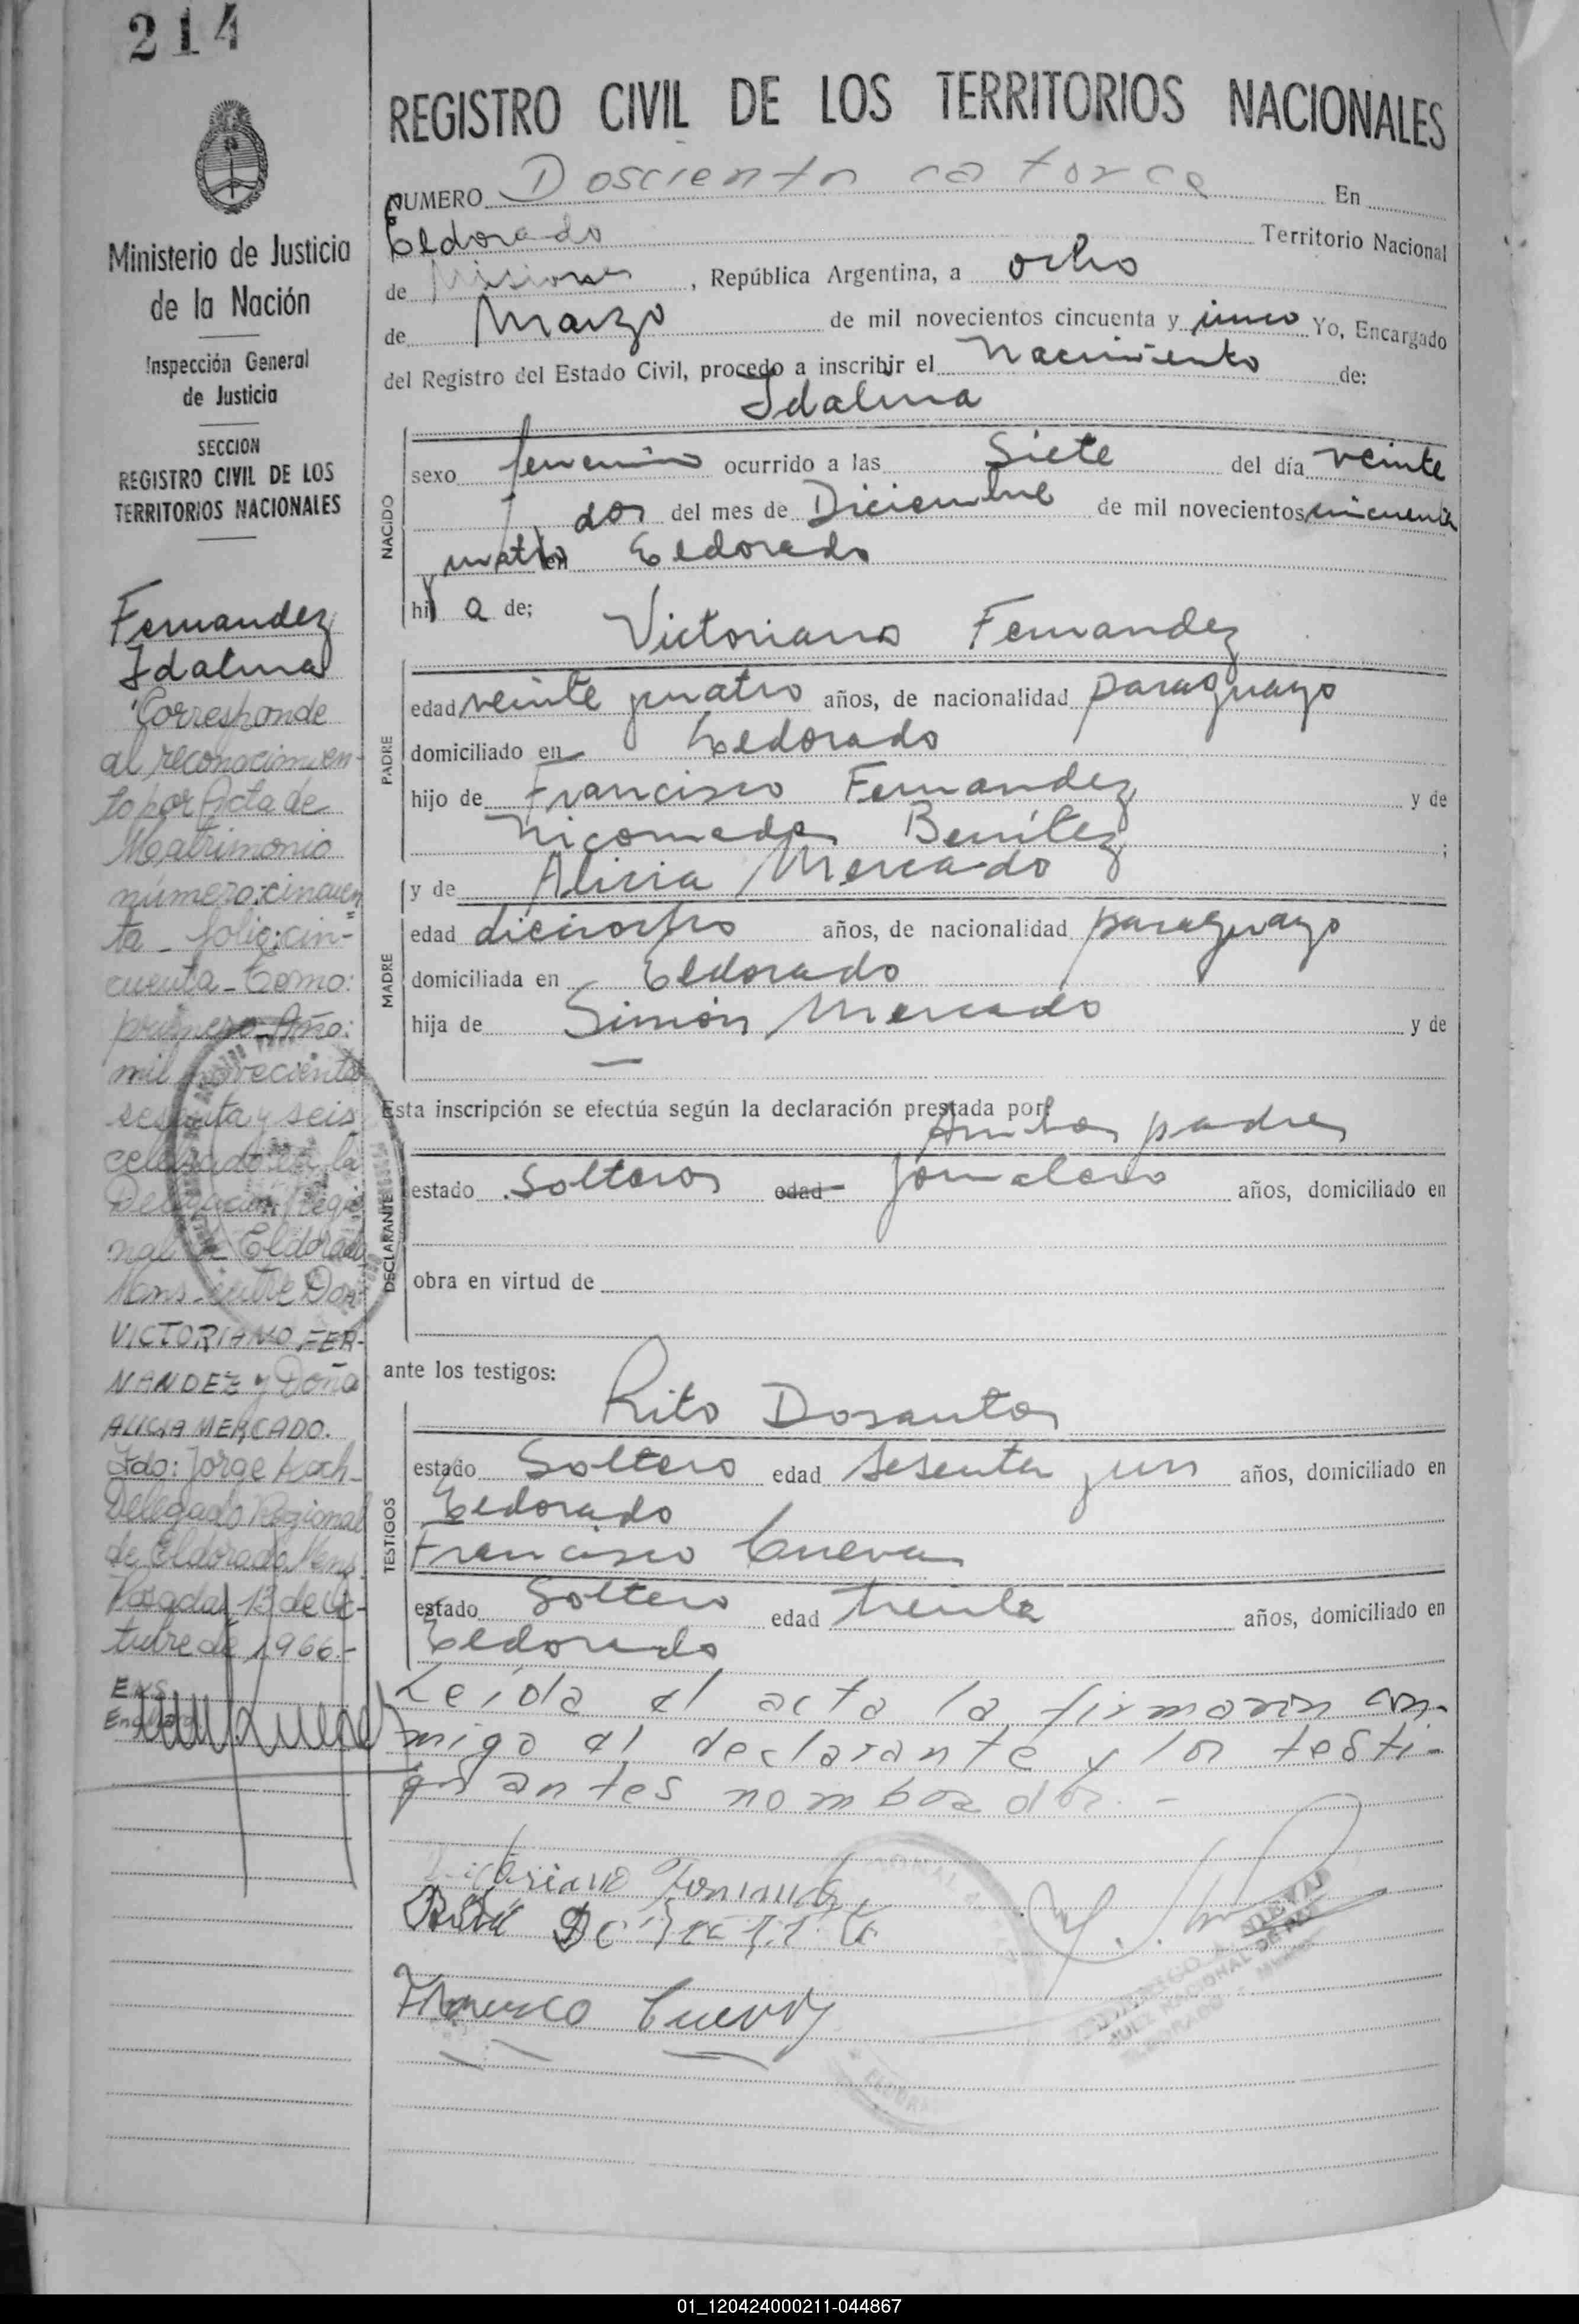 214
Ministerio de Justicia
de la Nación
Inspección General
de Justicia
SECCION
REGISTRO CIVIL DE LOS
TERRITORIOS NACIONALES
Fernandez
Idalina
Corresponde
al reconocimien-
to por Acta de
Matrimonio
número: cincuen
ta - folio: cin-
cuenta - Tomo:
primero - Año:
mil novecientos
sesenta y seis
celebrado en la
Delegacion Regio
nal de Eldorado
Mnes - entre Don
VICTORIANO FER-
NANDEZ y Doña
ALICIA MERCADO.
Fdo: Jorge Koch -
Delegado Regional
de Eldorado Mnes
Posadas, 13 de Oc-
tubre de 1966.-
REGISTRO CIVIL DE LOS TERRITORIOS NACIONALES
NUMERO Dosciento catorce En
Eldorado Territorio Nacional
de Misiones, República Argentina, a ocho
de Marzo de mil novecientos cincuenta y cinco Yo, Encargado
del Registro del Estado Civil, procedo a inscribir el Nacimiento de:
Idalina
NACIDO
sexo femenino ocurrido a las Siete del día veinte
y dos del mes de Diciembre de mil novecientos cincuenta
y cuatro en Eldorado
hij a de:
Victoriano Fernandez
PADRE
edad veinte y cuatro años, de nacionalidad paraguayo
domiciliado en Eldorado
hijo de Francisco Fernandez y de
Nicomeda Benítez ;
y de Alicia Mercado
MADRE
edad dieciocho años, de nacionalidad paraguayo
domiciliada en Eldorado
hija de Simón Mercado y de
—
Esta inscripción se efectúa según la declaración prestada por:
Ambos padres
DECLARANTE
estado solteros edad jornalero años, domiciliado en
obra en virtud de
ante los testigos:
Rito Dosantos
TESTIGOS
estado Soltero edad sesenta y un años, domiciliado en
Eldorado
Francisco Cuevas
estado Soltero edad treinta años, domiciliado en
Eldorado
Leída el acta la firmaron con-
migo el declarante y los testi-
gos antes nombrados.-
Victoriano Fernandez
Francisco Cuevas
JUEZ NACIONAL DE PAZ
ELDORADO
01_120424000211-044867